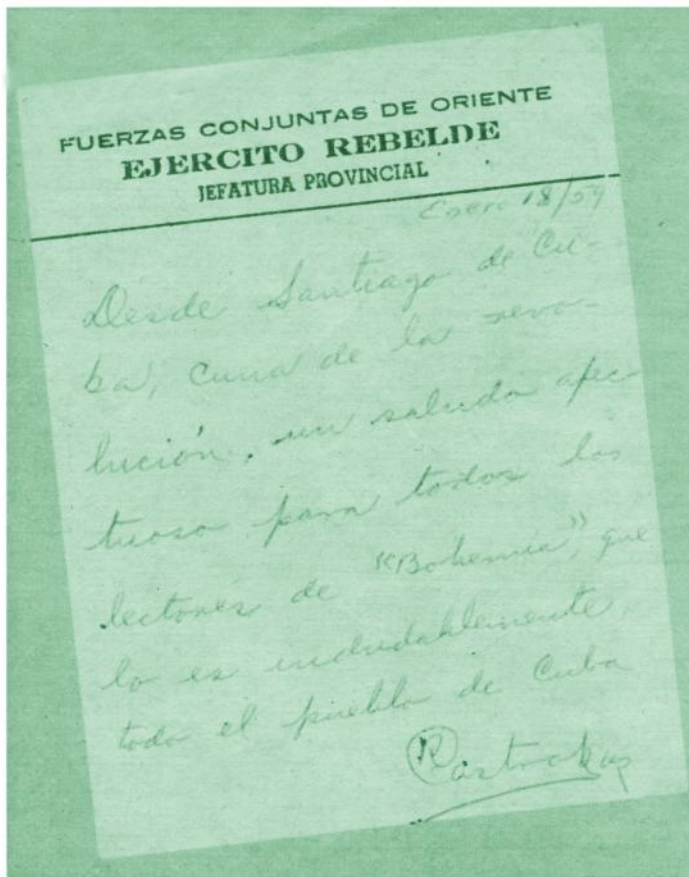 FUERZAS CONJUNTAS DE ORIENTE
EJERCITO REBELDE
JEFATURA PROVINCIAL
Enero 18/59
Desde Santiago de Cu-
ba, cuna de la revo-
lución, un saludo afec
tuoso para todos los
lectores de "Bohemia", que
lo es indudablemente,
todo el pueblo de Cuba